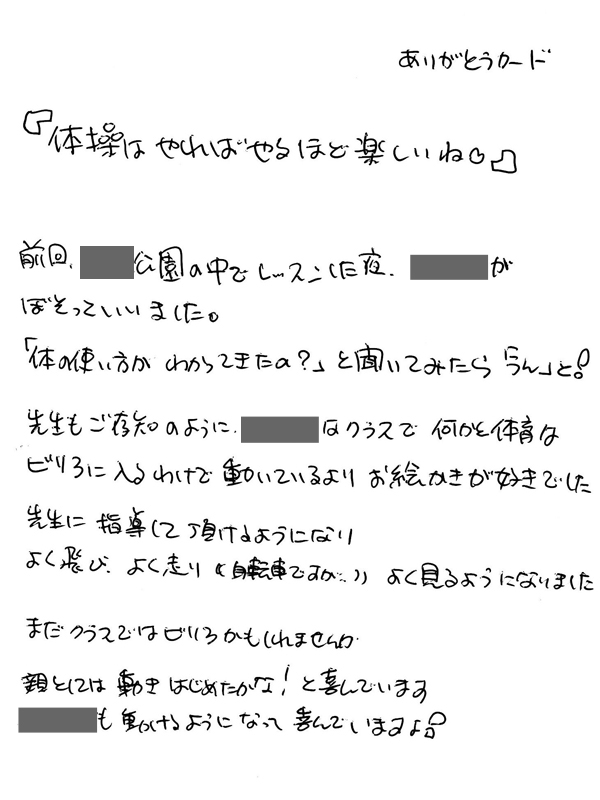 ありがとうカード
『体操は やればやるほど楽しいね。』
前回、公園の中でレッスンした夜、が
ぼそっといいました。
「体の使い方が わかってきたの?」と聞いてみたら「うん」と!
先生もご存知のように、はクラスで 何かと体育は
ビリ3に入るわけで動いているより お絵かきが好きでした
先生に 指導して頂けるようになり
よく飛び、よく走り（自転車ですが…）よく見るようになりました
まだクラスではビリ3かもしれませんが
親としては 動きはじめたかな! と喜んでいます
も動けるようになって 喜んでいますよ!